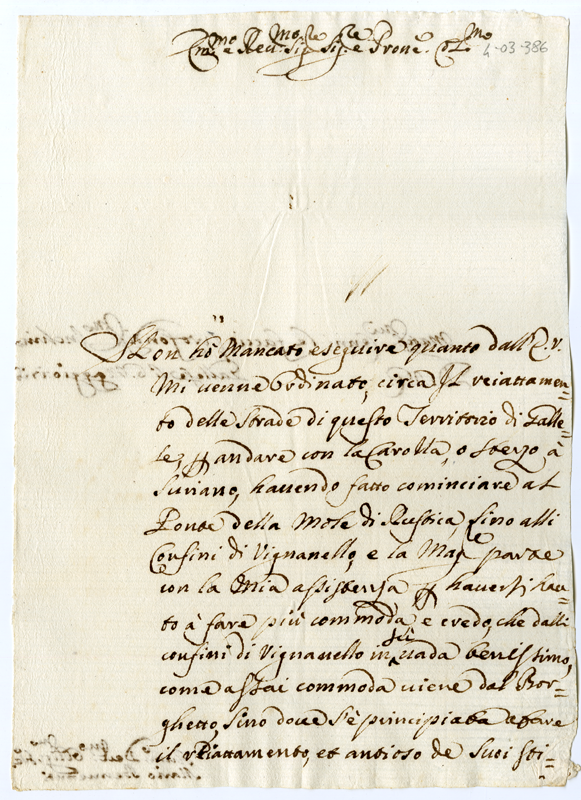 Em.mo e Rev.mo Sig.re Sig.re e Prone. Col.mo
4-03-386
Non hò Mancato eseguire quanto dall'E.V.
Mi venne Ordinato, circa il reiattamen=
to delle strade di questo Territorio di Galle=
se, p andare con la Carozza, o sterzo, à
Suriano, havendo fatto cominciare al
Ponte della Mole di Rustica, sino alli
Confini di Vignanello, e la Mag.re parte
con la Mia assistenza p haversi hau=
to à fare più commoda, e credo, che dalli
confini di Vignanello in vada benissimo,
come assai commoda viene dal Bor=
ghetto, sino dove s'è principiata à fare
il reiattamento, et antioso de Suoi sti=